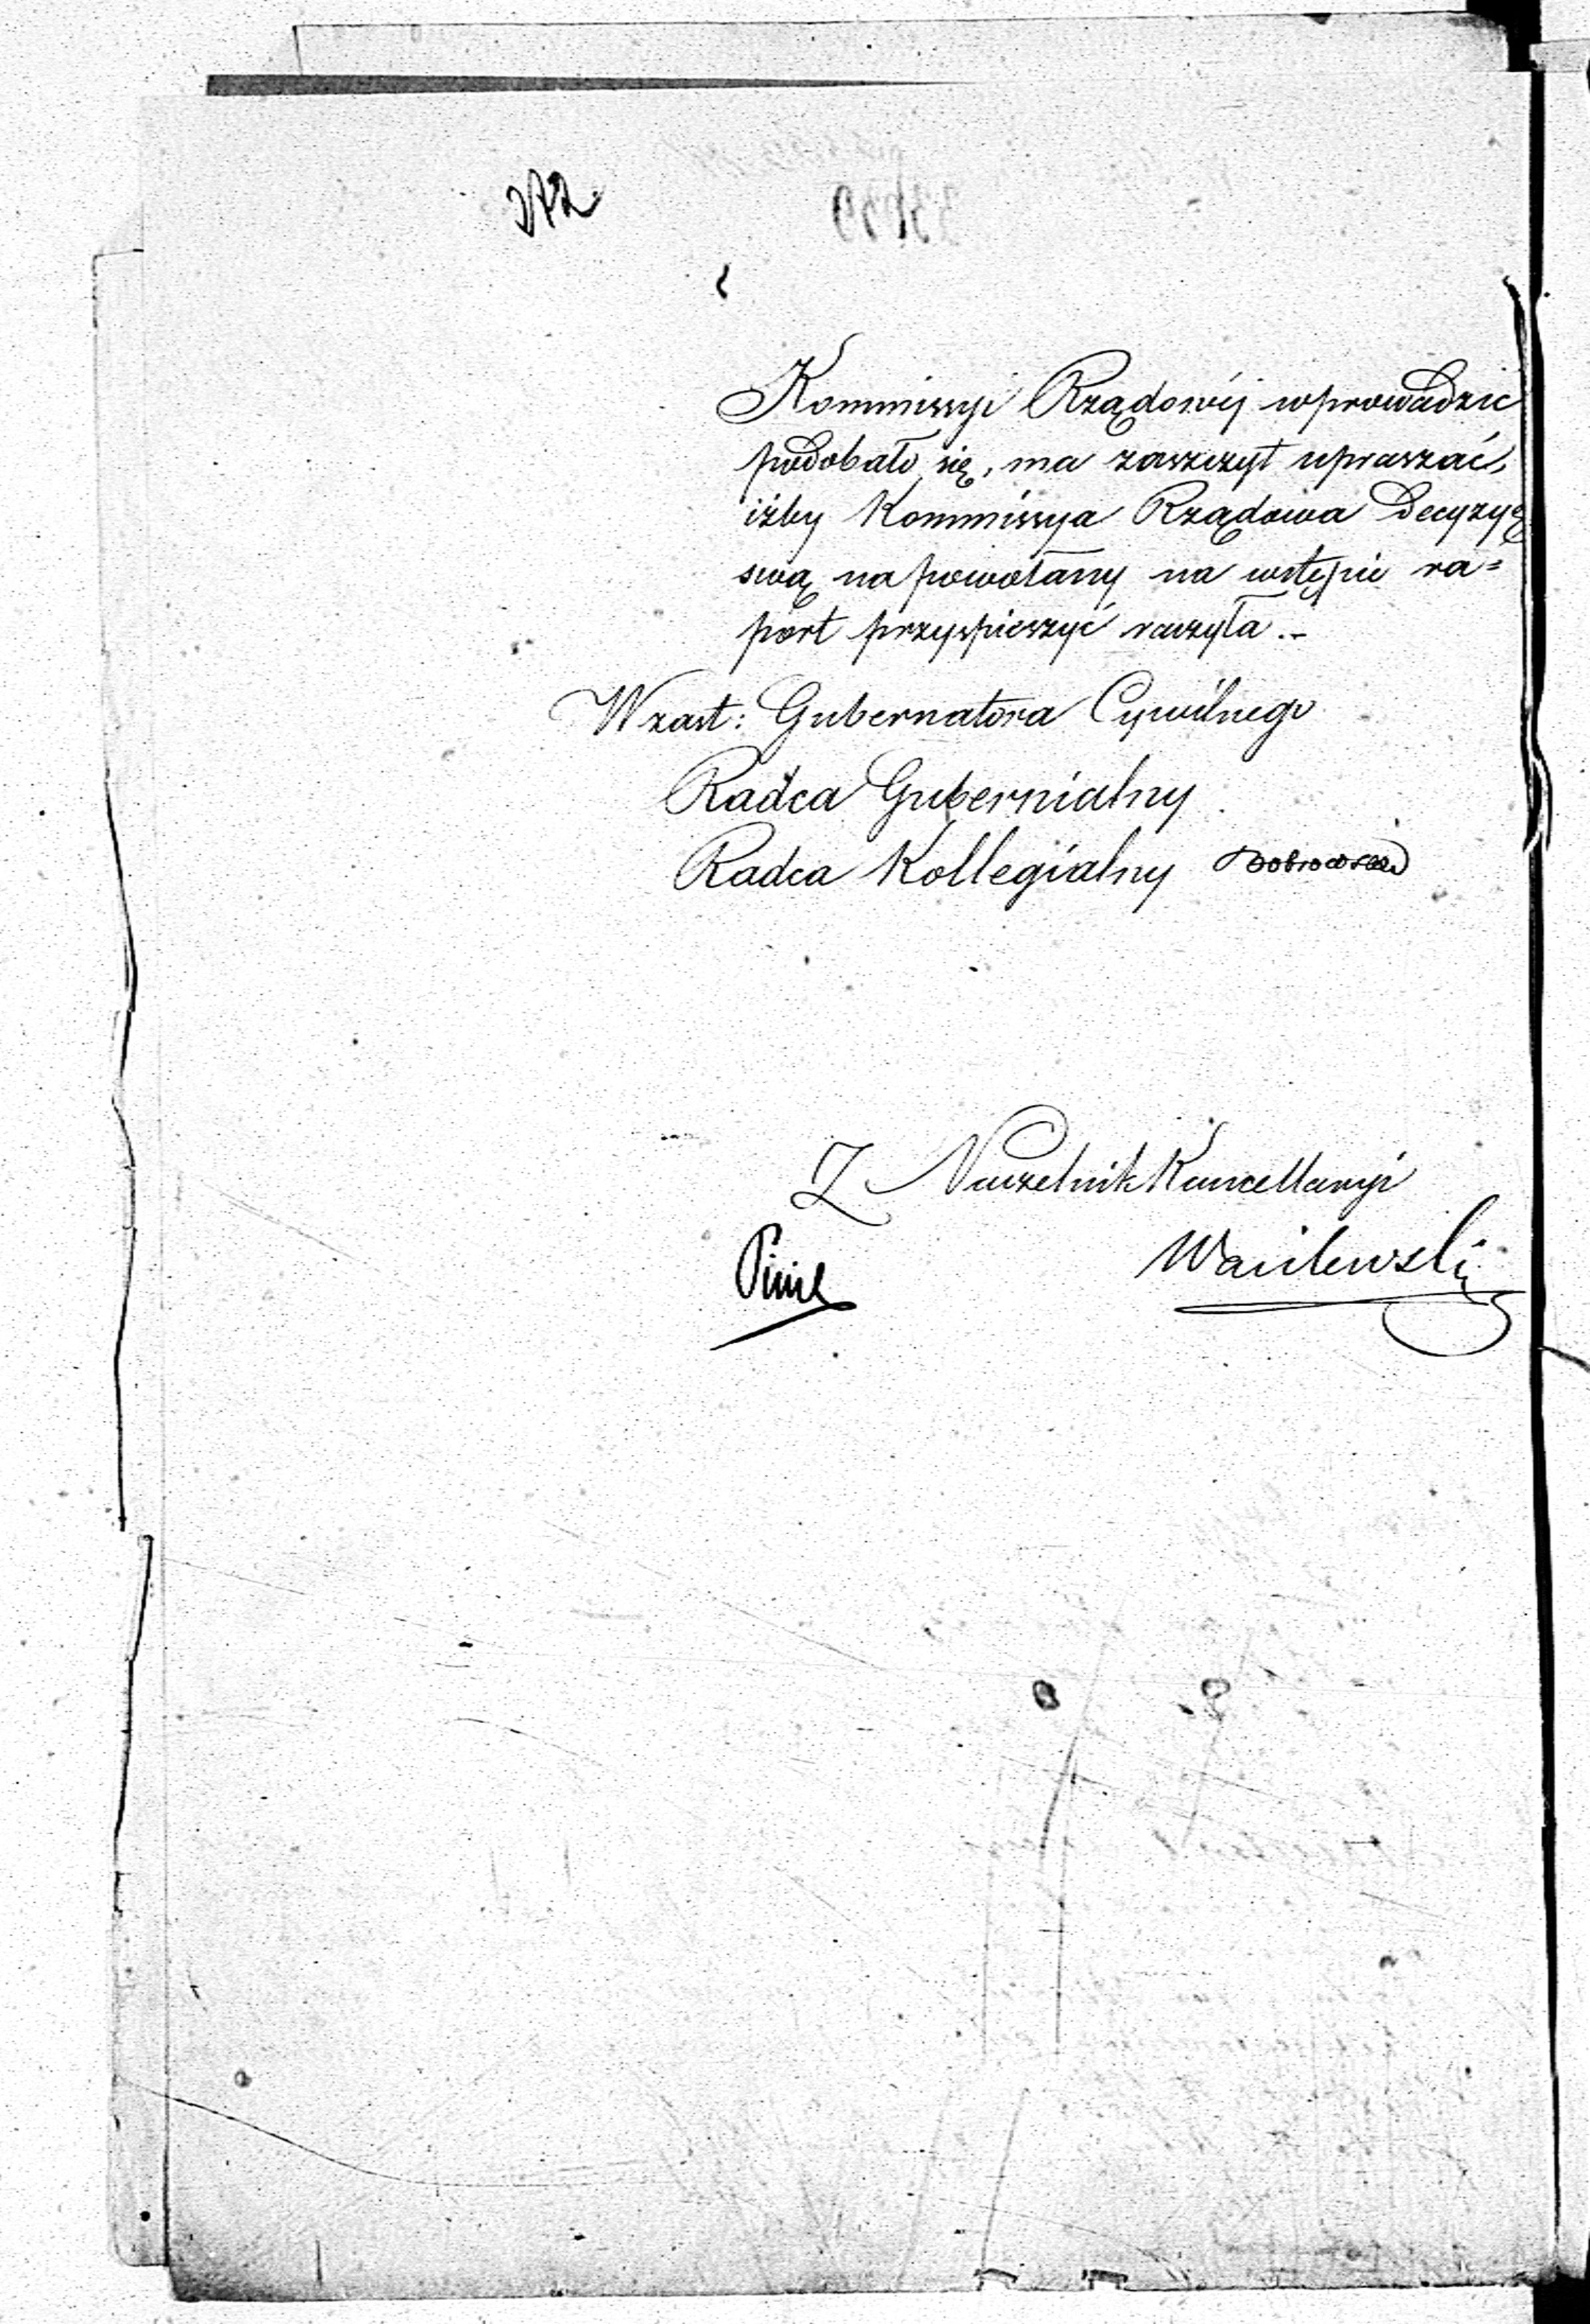 Kommissyi Rządowéj wprowadzić
podobało się, ma zaszczyt upraszać,
iżby Kommissya Rządowa Decyzyę
swą na powołany na wstępie ra=
port przyspieszyć raczyła.-
W zast: Gubernatora Cywilnego
Radca Gubernialny
Radca Kollegialny
Z Naczelnik Kancellaryi
Wasilewski